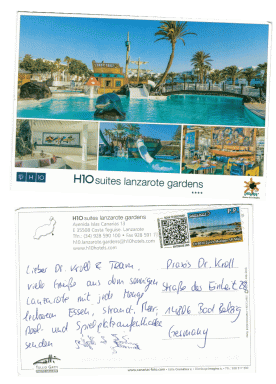 H10 suites lanzarote gardens
H10 suites lanzarote gardens
Avenida Islas Canarias 13
E 35508 Costa Teguise · Lanzarote
h10.lanzarote.gardens@h10hotels.com
www.h10hotels.com
Lieber Dr. Kroll & Team,
viele Grüße aus dem sonnigen
Lanzarote mit jede Menge
leckerem Essen, Strand, Meer,
Pool- und Spielplatzaufenthalte
senden
Praxis Dr. Kroll
Straße der Einheit
14806 Bad Belzig
Germany